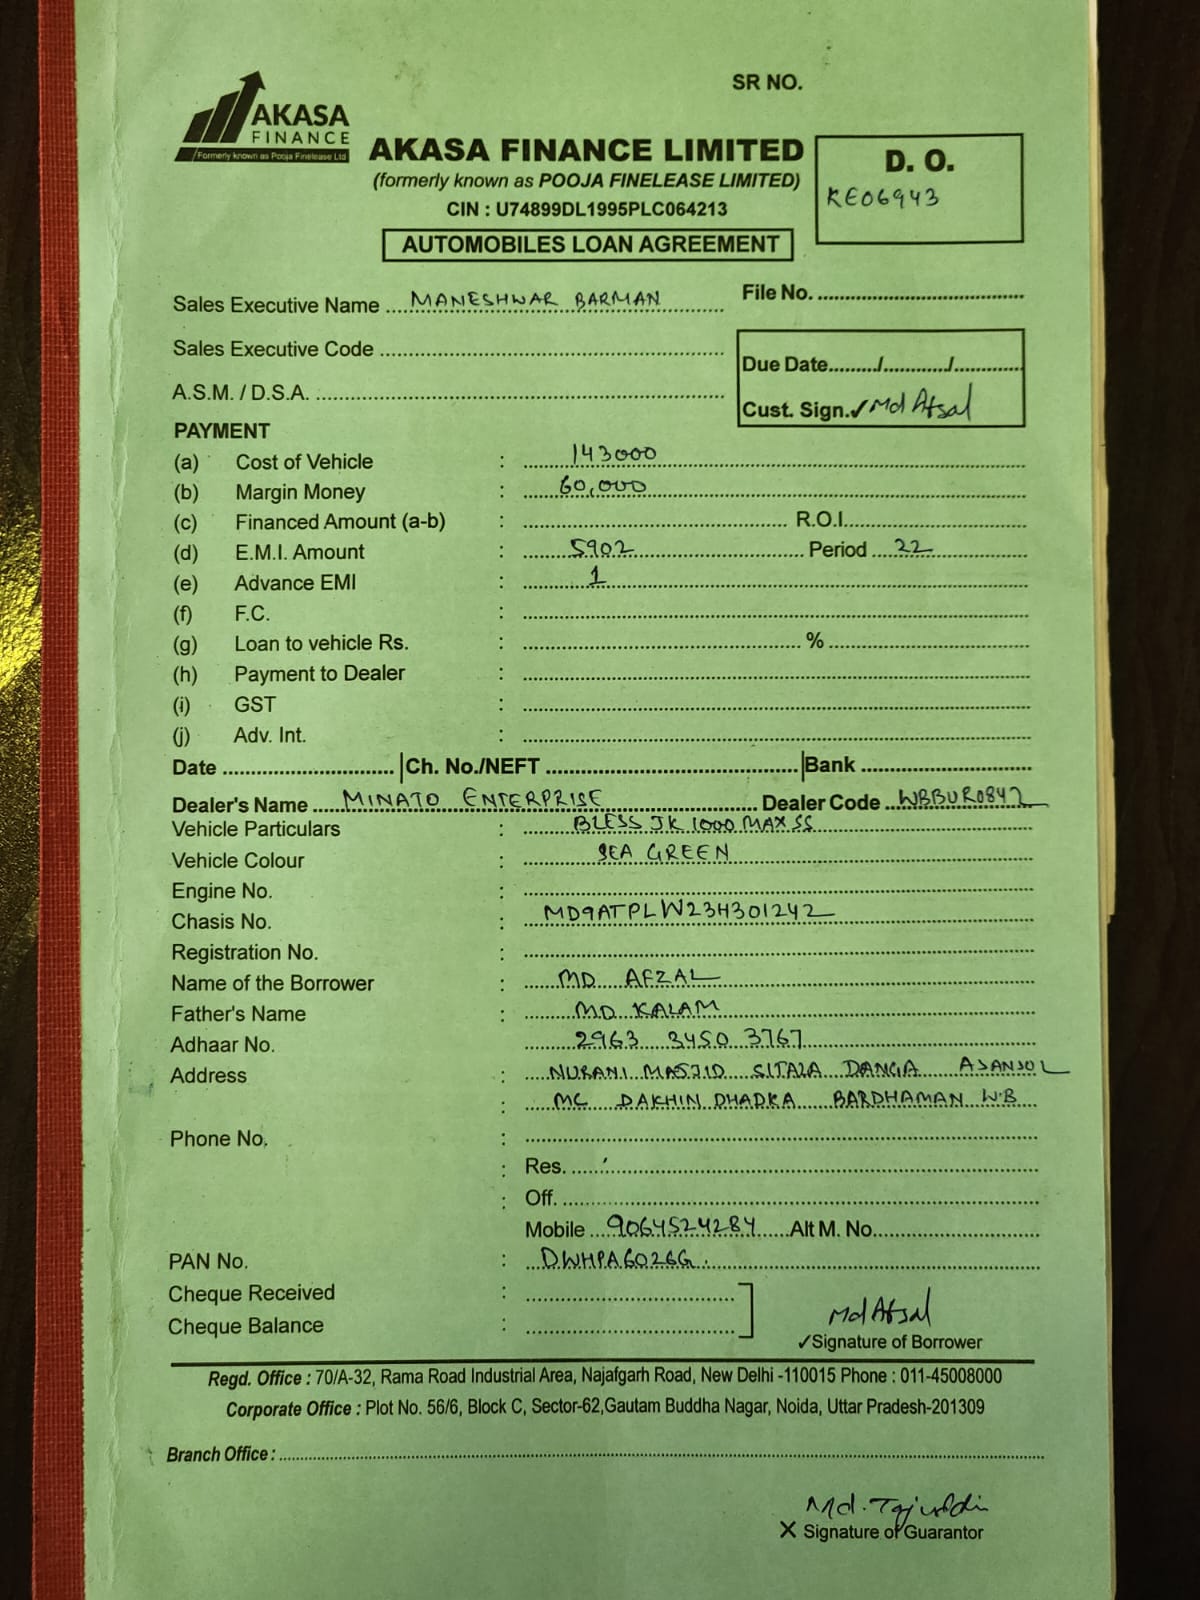 SR NO.
AKASA
FINANCE
Formerly known as Pooja Finelease Ltd
AKASA FINANCE LIMITED
(formerly known as POOJA FINELEASE LIMITED)
CIN : U74899DL1995PLC064213
AUTOMOBILES LOAN AGREEMENT
D. O.
KE06943
Sales Executive Name MANESHWAR BARMAN
File No.
Sales Executive Code
Due Date / /
A.S.M. / D.S.A.
Cust. Sign. ✓ Md Afsal
PAYMENT
(a) Cost of Vehicle : 143000
(b) Margin Money : 60,000
(c) Financed Amount (a-b) : R.O.I.
(d) E.M.I. Amount : 5902 Period 22
(e) Advance EMI : 1
(f) F.C. :
(g) Loan to vehicle Rs. : %
(h) Payment to Dealer :
(i) GST :
(j) Adv. Int. :
Date | Ch. No./NEFT | Bank
Dealer's Name MINATO ENTERPRISE Dealer Code WBBUR0842
Vehicle Particulars : BLESS JK 1000 MAX SS
Vehicle Colour : SEA GREEN
Engine No. :
Chasis No. : MD9ATPLW23H301242
Registration No. :
Name of the Borrower : MD AFZAL
Father's Name : MD KALAM
Adhaar No. : 2963 3450 3767
Address : NURANI MASJID SITALA DANGA ASANSOL
: MC DAKHIN DHADKA BARDHAMAN W.B
Phone No. :
: Res.
: Off.
Mobile 9064524284 Alt M. No.
PAN No. : DWHPA6026G
Cheque Received :
Cheque Balance :
Md Afsal
✓Signature of Borrower
Regd. Office : 70/A-32, Rama Road Industrial Area, Najafgarh Road, New Delhi -110015 Phone : 011-45008000
Corporate Office : Plot No. 56/6, Block C, Sector-62,Gautam Buddha Nagar, Noida, Uttar Pradesh-201309
Branch Office :
Md. Tajuddin
X Signature of Guarantor